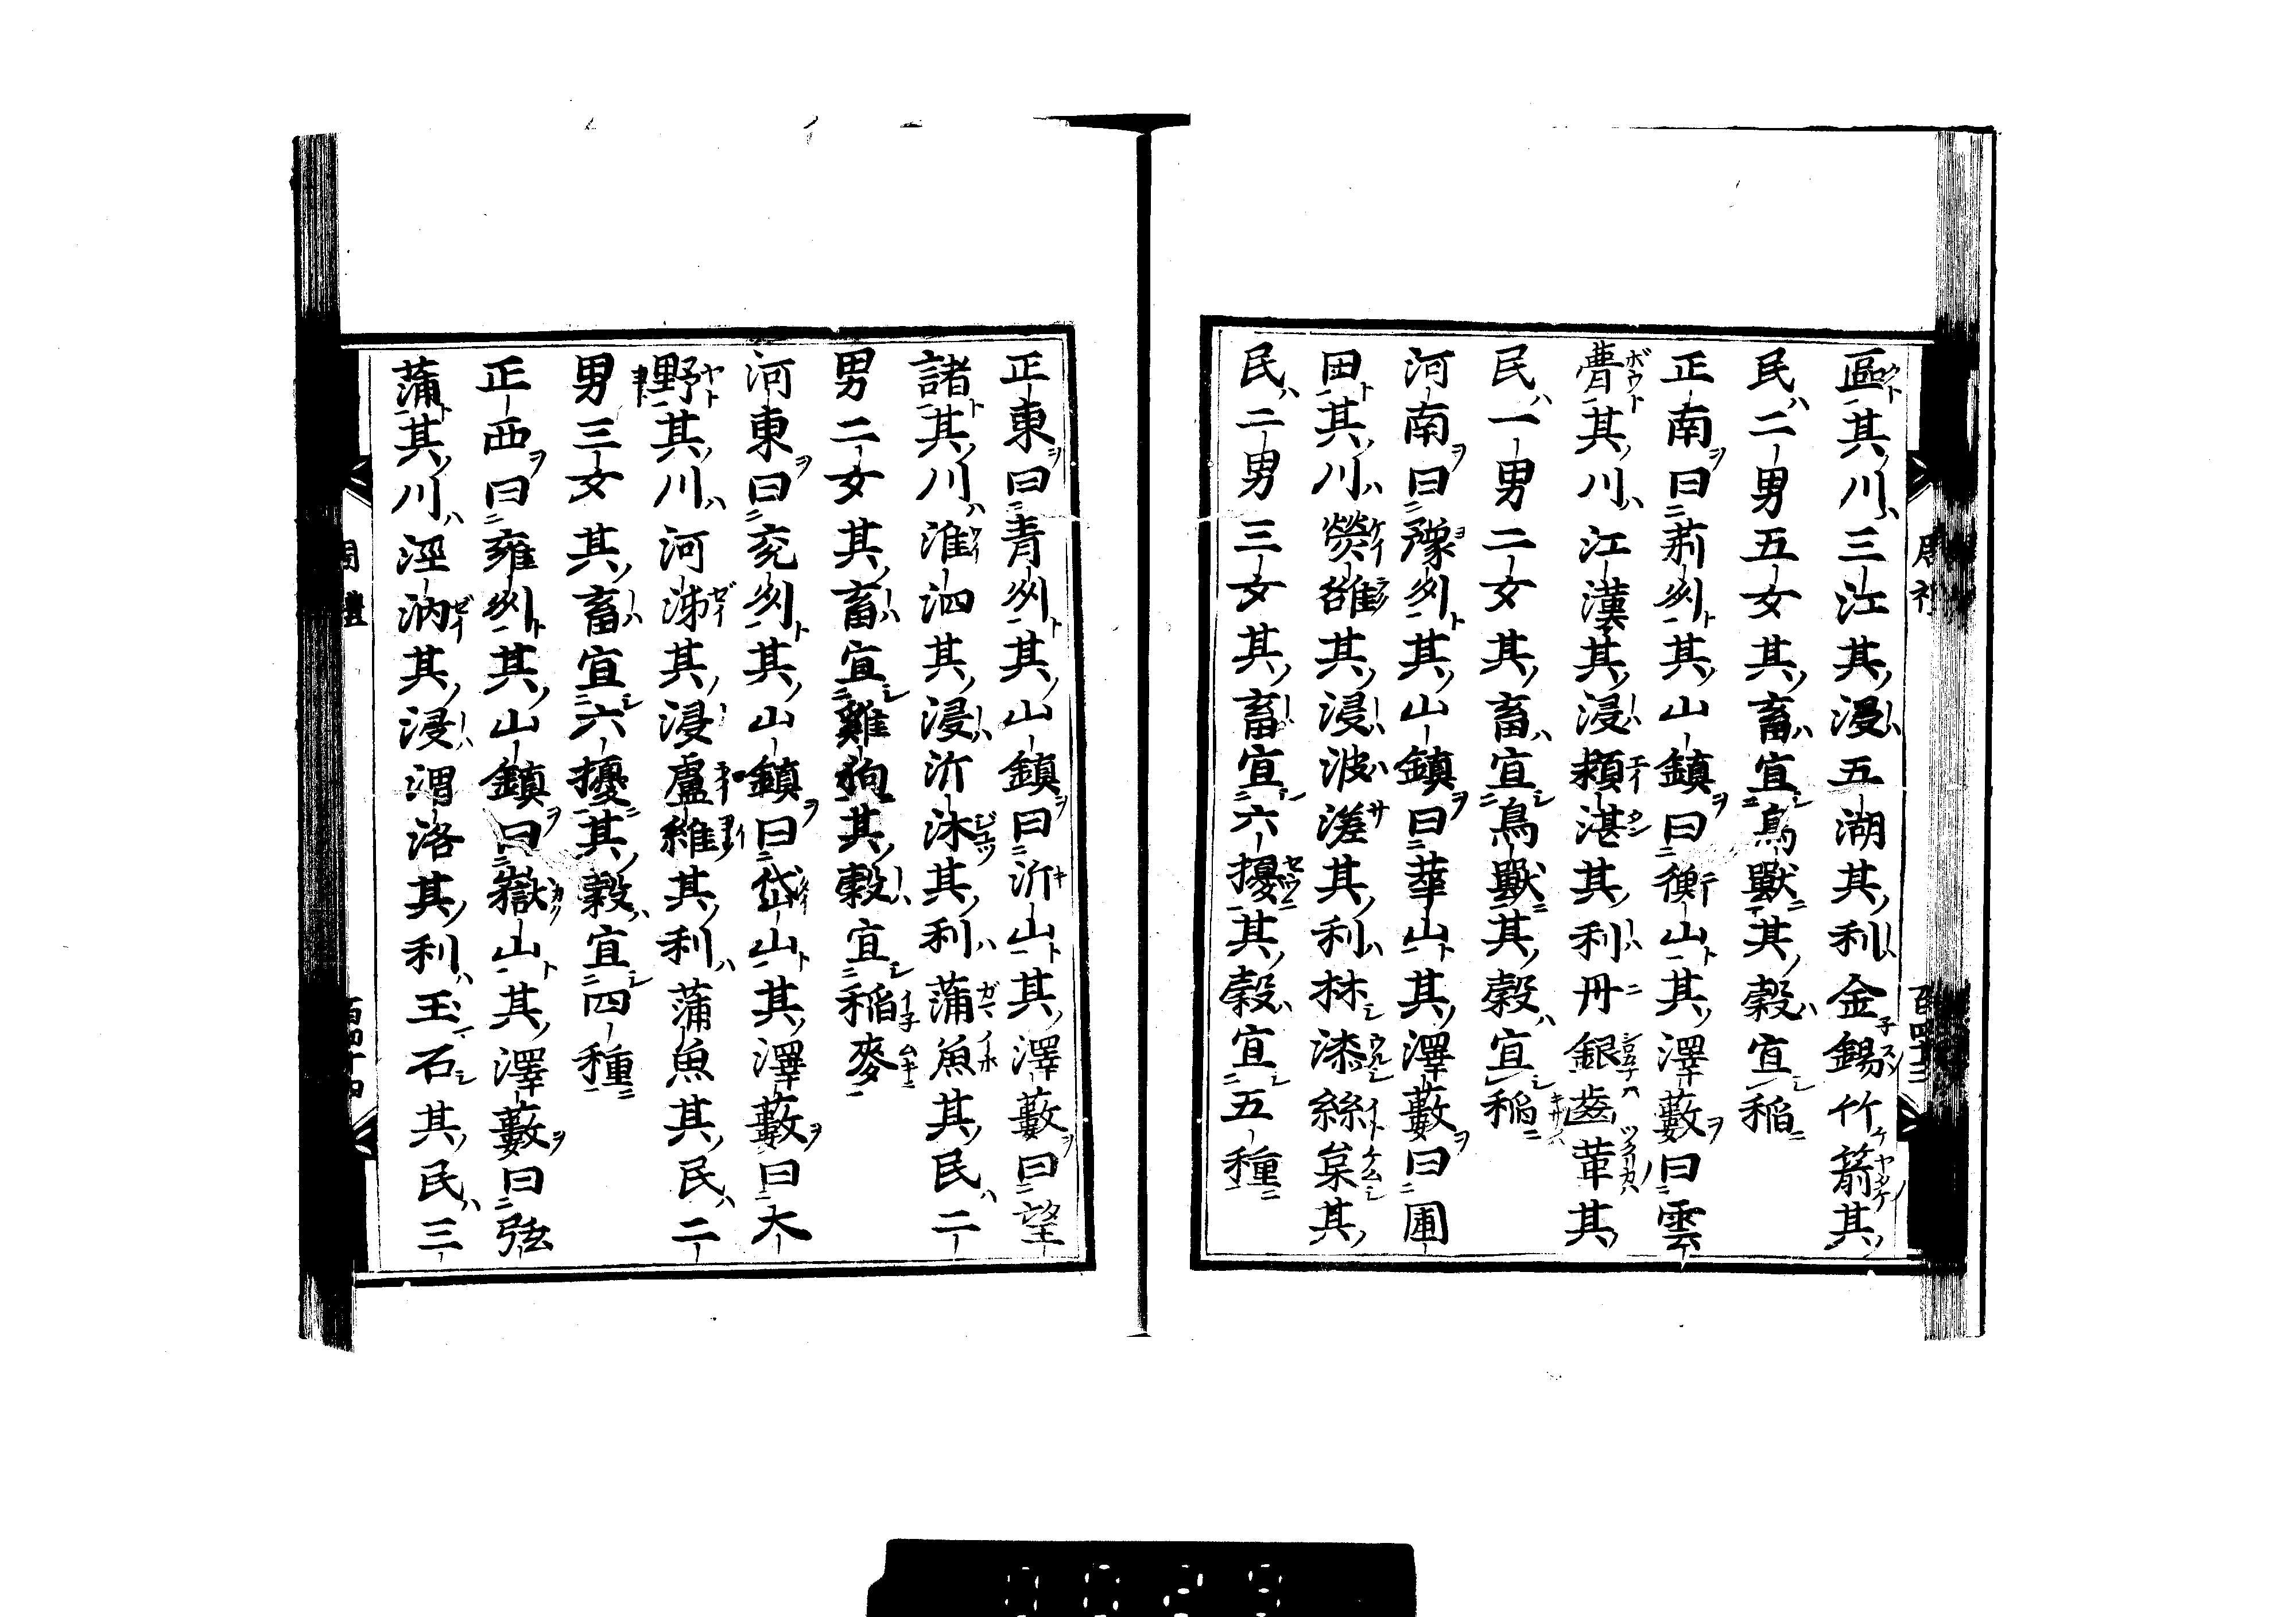 區其川三江其浸五湖其利金錫竹箭其
民二男五女其畜宜鳥獸其穀宜稲
正南曰荊州其山鎮曰衡山其澤藪曰雲
瞢其川江漢其浸潁湛其利丹銀齒革其
民一男二女其畜宜鳥獸其穀宜稲
河南曰豫州其山鎮曰華山其澤藪曰圃
田其川熒雒其浸波溠其利林漆絲枲其
民二男三女其畜宜六擾其穀宜五種
正東曰青州其山鎮曰沂山其澤藪曰望
諸其川淮泗其浸沂沭其利蒲魚其民二
男二女其畜宜雞狗其穀宜稲麥
河東曰兗州其山鎮曰岱山其澤藪曰大
野其川河泲其浸盧維其利蒲魚其民二
男三女其畜宜六擾其穀宜四種
正西曰雍州其山鎮曰嶽山其澤藪曰弦
蒲其川涇汭其浸渭洛其利玉石其民三